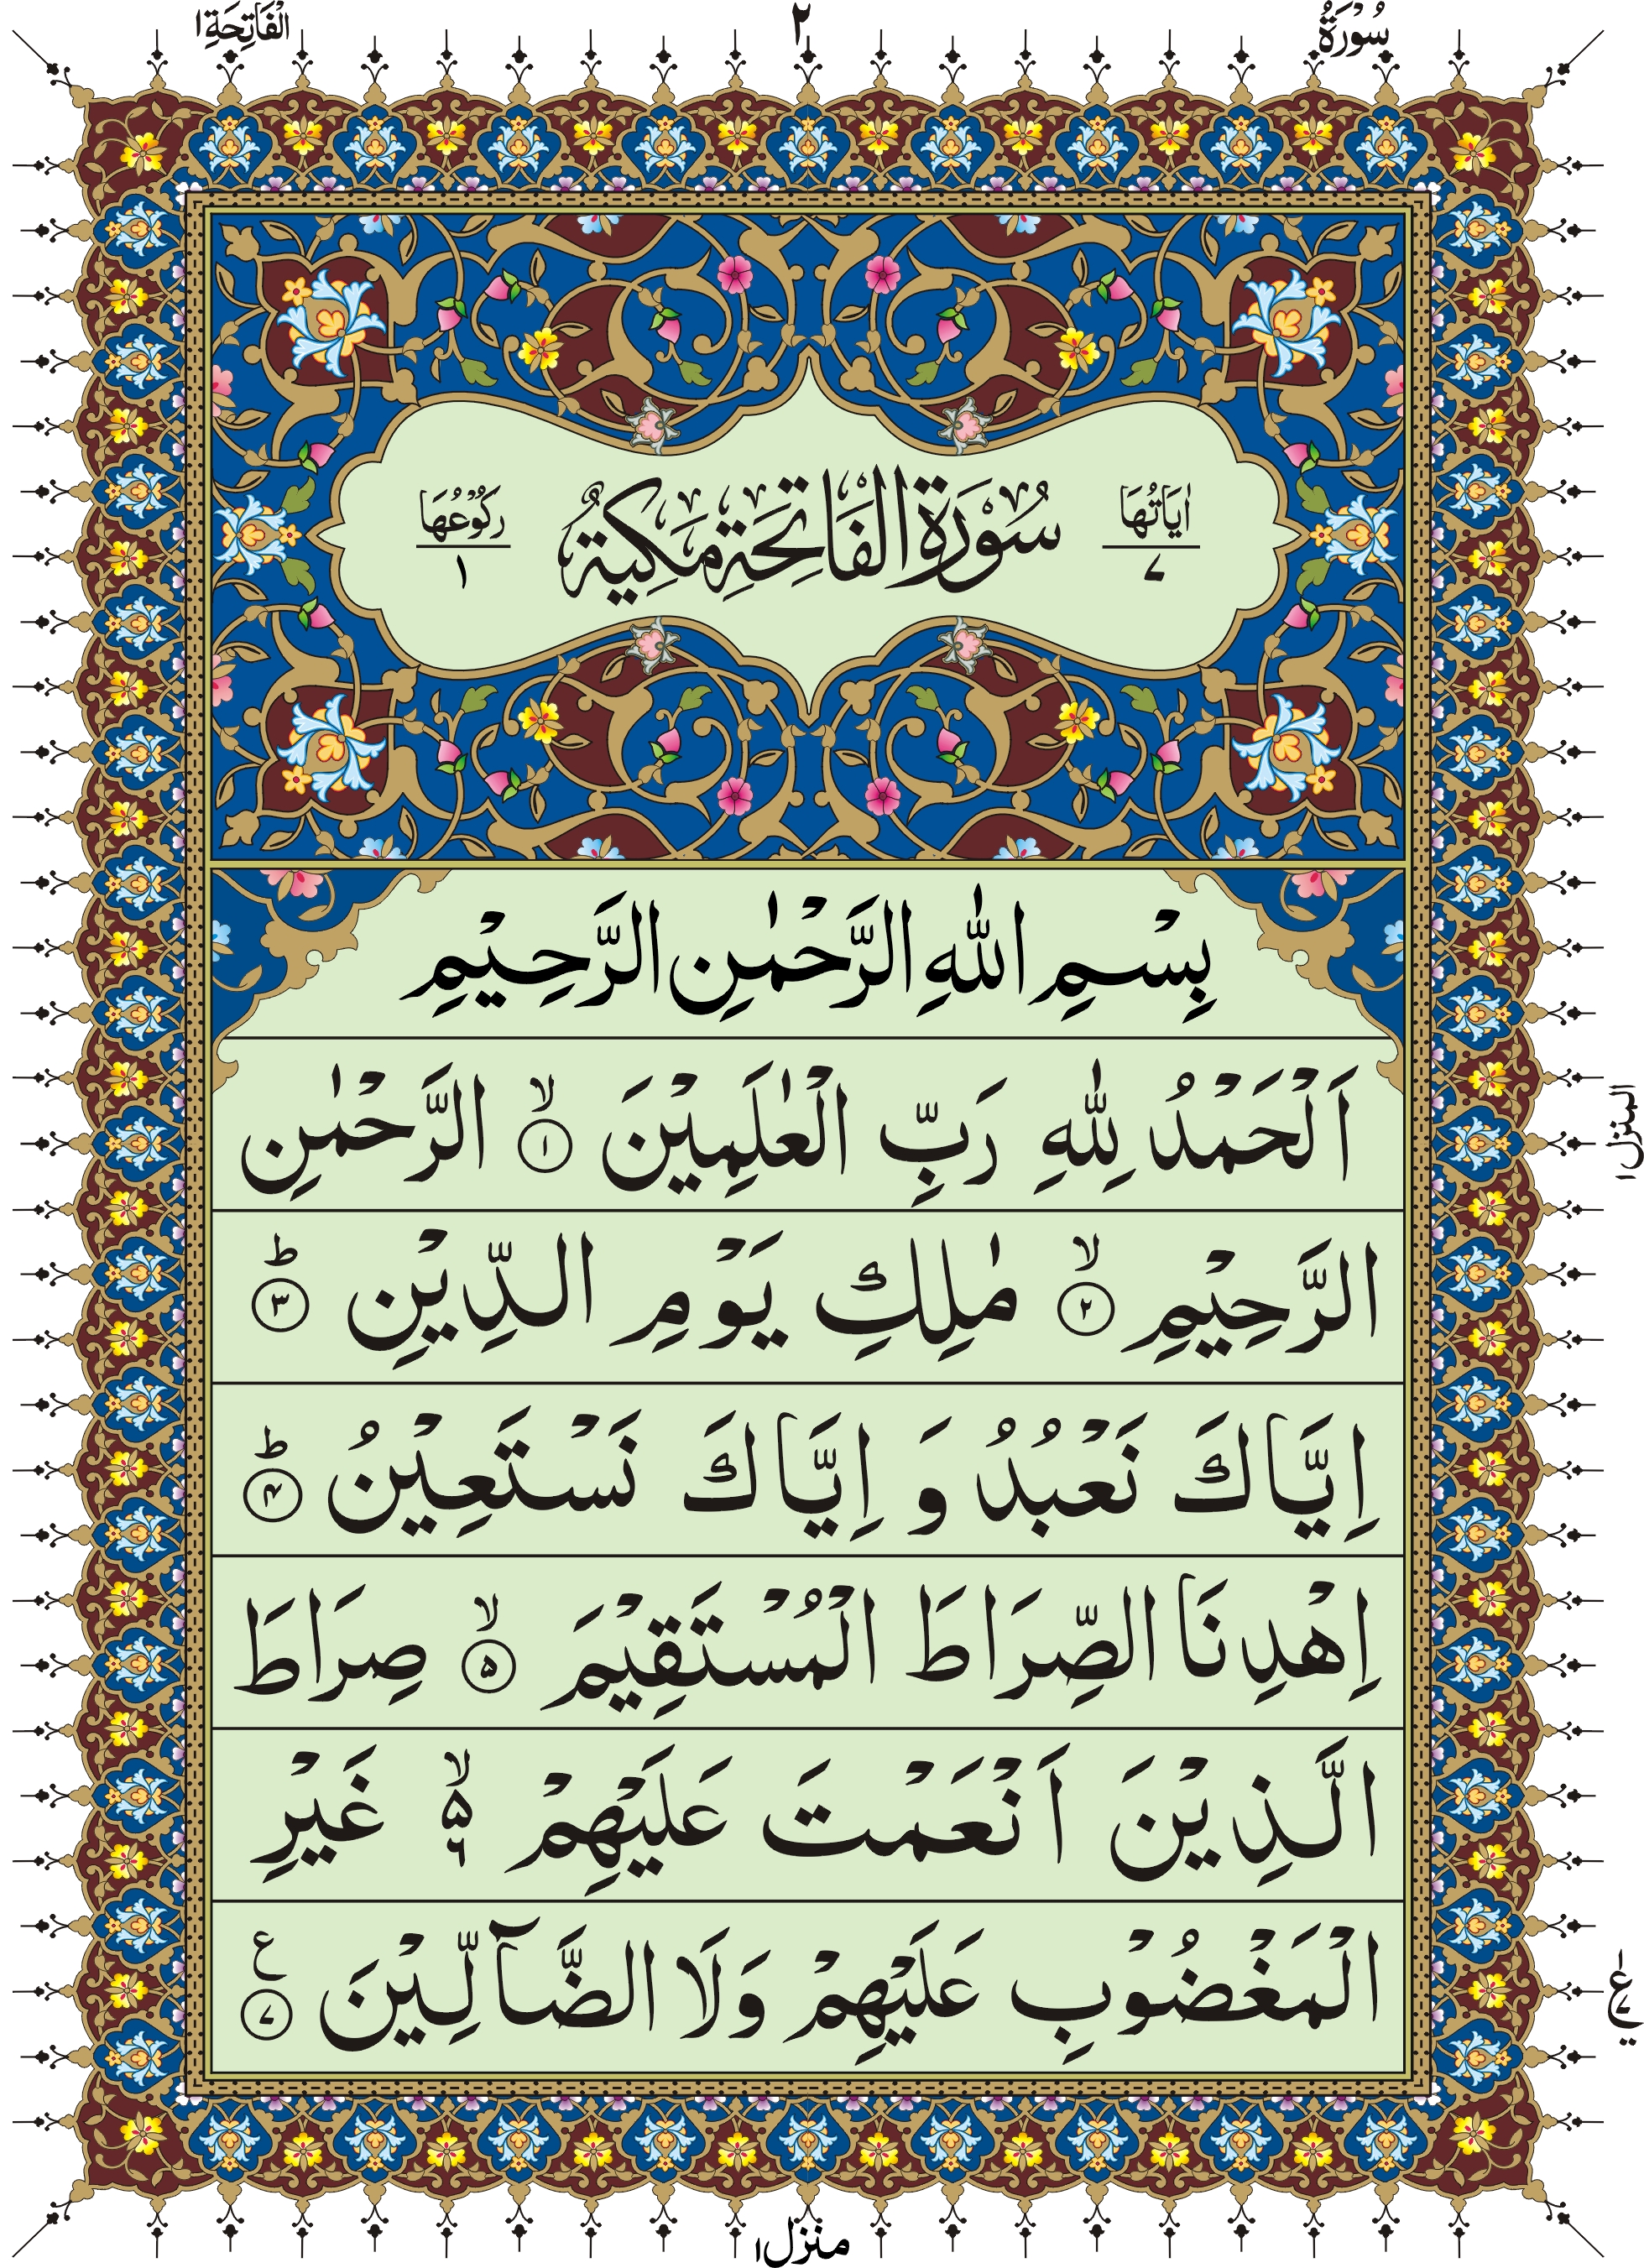 سُوْرَةُ ٢ الْفَاتِحَةِ ١
اٰیَاتُهَا ٧ سُوْرَةُ الْفَاتِحَةِ مَكِّیَّةٌ رُكُوْعُهَا ١
بِسْمِ اللّٰهِ الرَّحْمٰنِ الرَّحِیْمِ
اَلْحَمْدُ لِلّٰهِ رَبِّ الْعٰلَمِیْنَ ۙ﴿۱﴾ الرَّحْمٰنِ
الرَّحِیْمِ ۙ﴿۲﴾ مٰلِكِ یَوْمِ الدِّیْنِ ؕ﴿۳﴾
اِیَّاكَ نَعْبُدُ وَ اِیَّاكَ نَسْتَعِیْنُ ؕ﴿۴﴾
اِهْدِنَا الصِّرَاطَ الْمُسْتَقِیْمَ ۙ﴿۵﴾ صِرَاطَ
الَّذِیْنَ اَنْعَمْتَ عَلَیْهِمْ ۙ۵ ۶ غَیْرِ
الْمَغْضُوْبِ عَلَیْهِمْ وَلَا الضَّآلِّیْنَ ﴿۷﴾ ع
المنزل ١
منزل ١